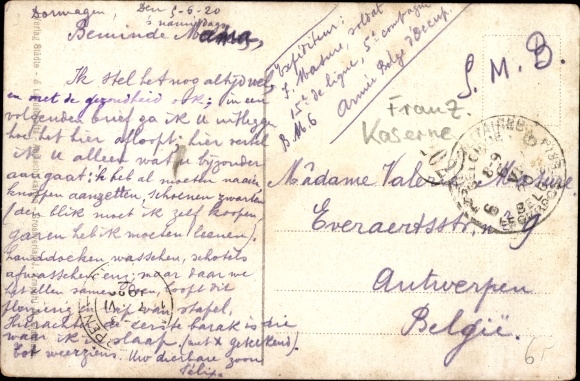 Dormagen, Den 5-6-20
's namiddags
Beminde Mama,
Ik stel het nog altijd wel
en met de gezondheid ook; in een
volgenden brief ga ik U uitleggen
hoe het hier afloopt; hier vertel
ik U alleen wat U bijzonder
aangaat: Ik heb al moeten naaien,
knoppen aanzetten, schoenen zwarten
(den blik moet ik zelf koopen,
garen heb ik moeten leenen).
Handdoeken wasschen, schotels
afwasschen enz; maar daar we
het allen samen doen, loopt dit
vlug van stapel.
Hierachter de eerste barak is die
waar ik slaap (met x getekend).
Tot weerziens. Uw dierbare zoon
Félix.
Expéditeur:
F. Masure, soldat
15e de ligne, 5e compagnie
Armée Belge d'Occup.
B.M.6
S.M.B.
Franz.
Kaserne
Madame Masure
Everaertsstr. 9
Antwerpen
België.